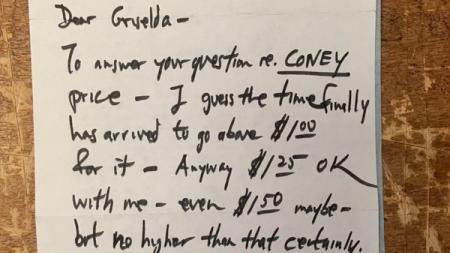 Dear Griselda —
To answer your question re. CONEY
price — I guess the time finally
has arrived to go above $1.00
for it — Anyway $1.25 OK
with me — even $1.50 maybe —
but no higher than that certainly.